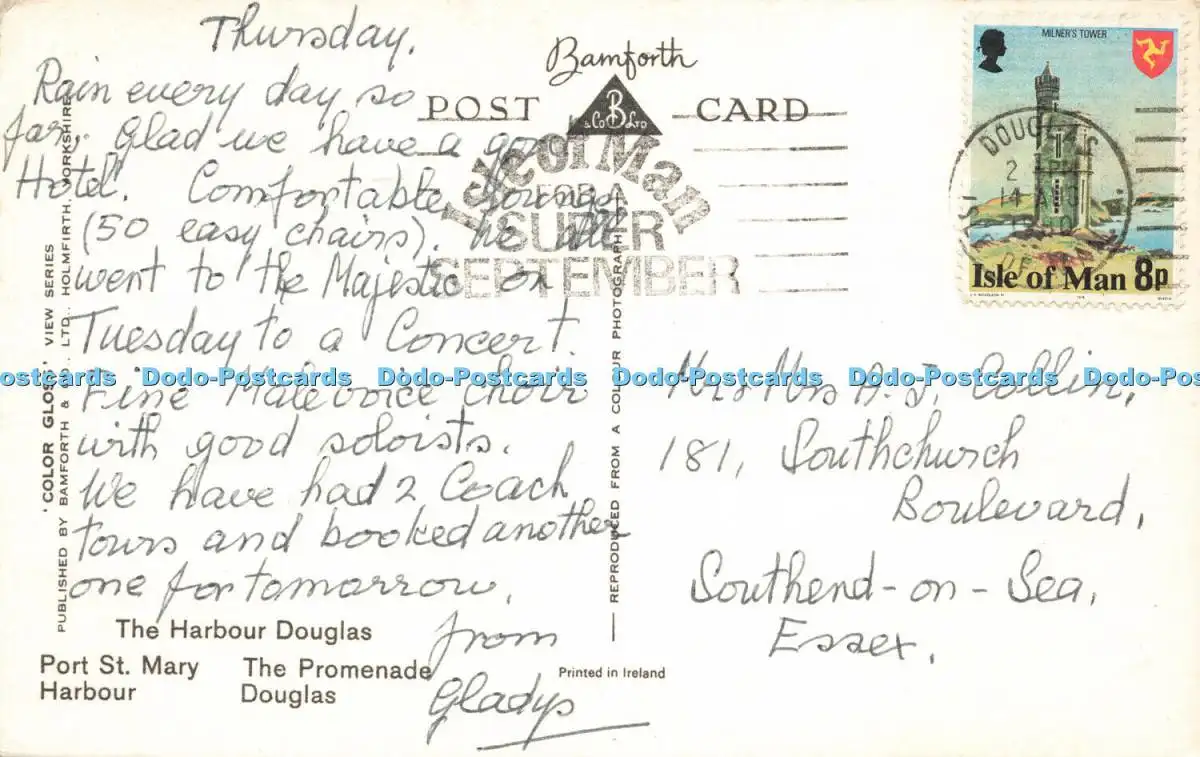 Thursday.
Rain every day so
far. Glad we have a good
Hotel. Comfortable lounge
(50 easy chairs). We all
went to the Majestic on
Tuesday to a Concert.
Fine Malevoice choir
with good soloists.
We have had 2 Coach
tours and booked another
one for tomorrow.
from
Gladys
The Harbour Douglas
Port St. Mary
Harbour
The Promenade
Douglas
'COLOR GLOSS' VIEW SERIES
PUBLISHED BY BAMFORTH & CO., LTD., HOLMFIRTH, YORKSHIRE
Bamforth
POST CARD
B
& Co Ltd
Isle of Man
FOR A
SUPER
SEPTEMBER
REPRODUCED FROM A COLOUR PHOTOGRAPH
Printed in Ireland
MILNER'S TOWER
Isle of Man 8p
DOUGLAS
14 AUG
Mr & Mrs A. J. Collin,
181, Southchurch
Boulevard,
Southend-on-Sea,
Essex.
ostcards Dodo-Postcards Dodo-Postcards Dodo-Postcards Dodo-Postcards Dodo-Po